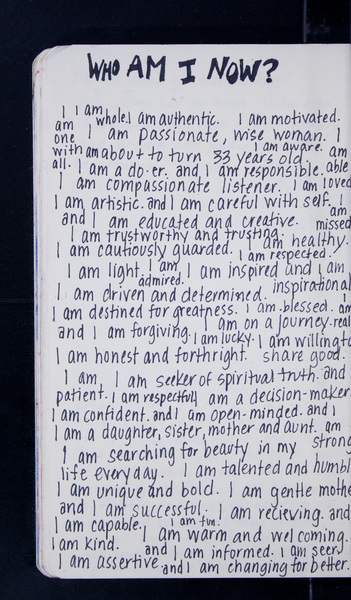 WHO AM I NOW?
I am one with all. I am whole. I am authentic. I am motivated.
I am passionate, wise woman. I am able.
I am about to turn 33 years old. I am aware.
I am a do-er. and I am responsible.
I am compassionate listener. I am loved
I am artistic. and I am careful with self. I am missed
and I am educated and creative.
I am trustworthy and trusting. I am healthy.
I am cautiously guarded. I am respected.
I am light. I am admired. I am inspired and I am inspirational
I am driven and determined.
I am destined for greatness. I am blessed. I am real
and I am forgiving. I am lucky. I am on a journey.
I am honest and forthright. I am willing to share good.
I am patient. I am seeker of spiritual truth. and
I am respectful. I am a decision-maker
I am confident. and I am open-minded. and I am strong
I am a daughter, sister, mother and aunt.
I am searching for beauty in my
life everyday. I am talented and humbl
I am unique and bold. I am gentle mothe
and I am successful. I am recieving. and
I am capable. I am fun. I am warm and welcoming.
I am kind. and I am informed. I am seer
I am assertive and I am changing for better.